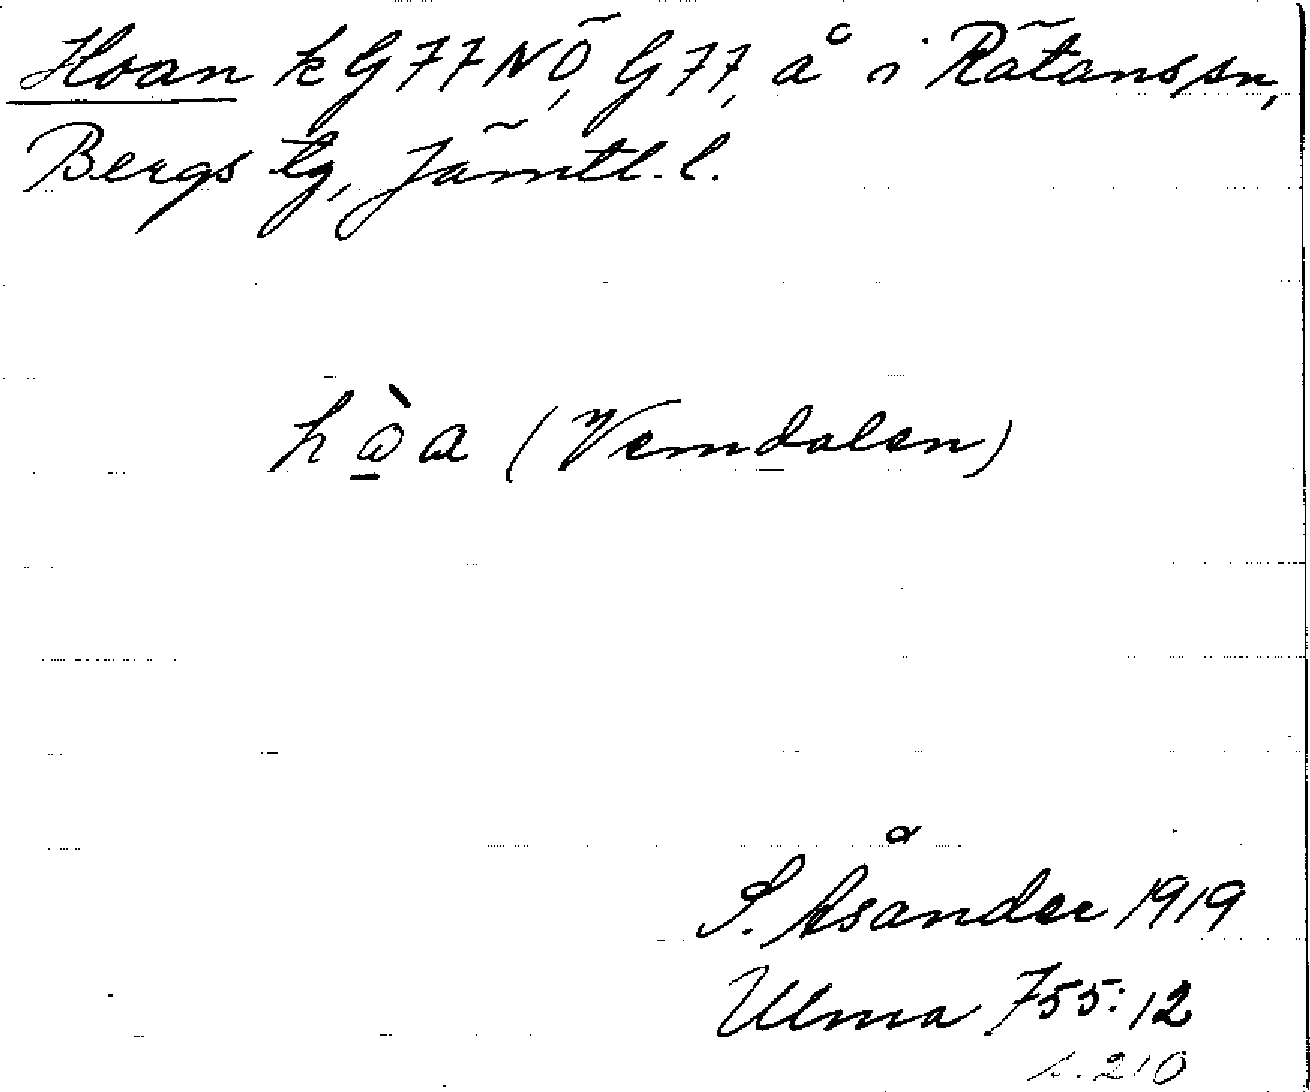 Hoan k G 77 NÖ, G 77, å i Rätans sn,
Bergs tg, Jämtl. l.
hòa (Vemdalen)
S. Åsander 1919
Ulma 755:12
s. 210